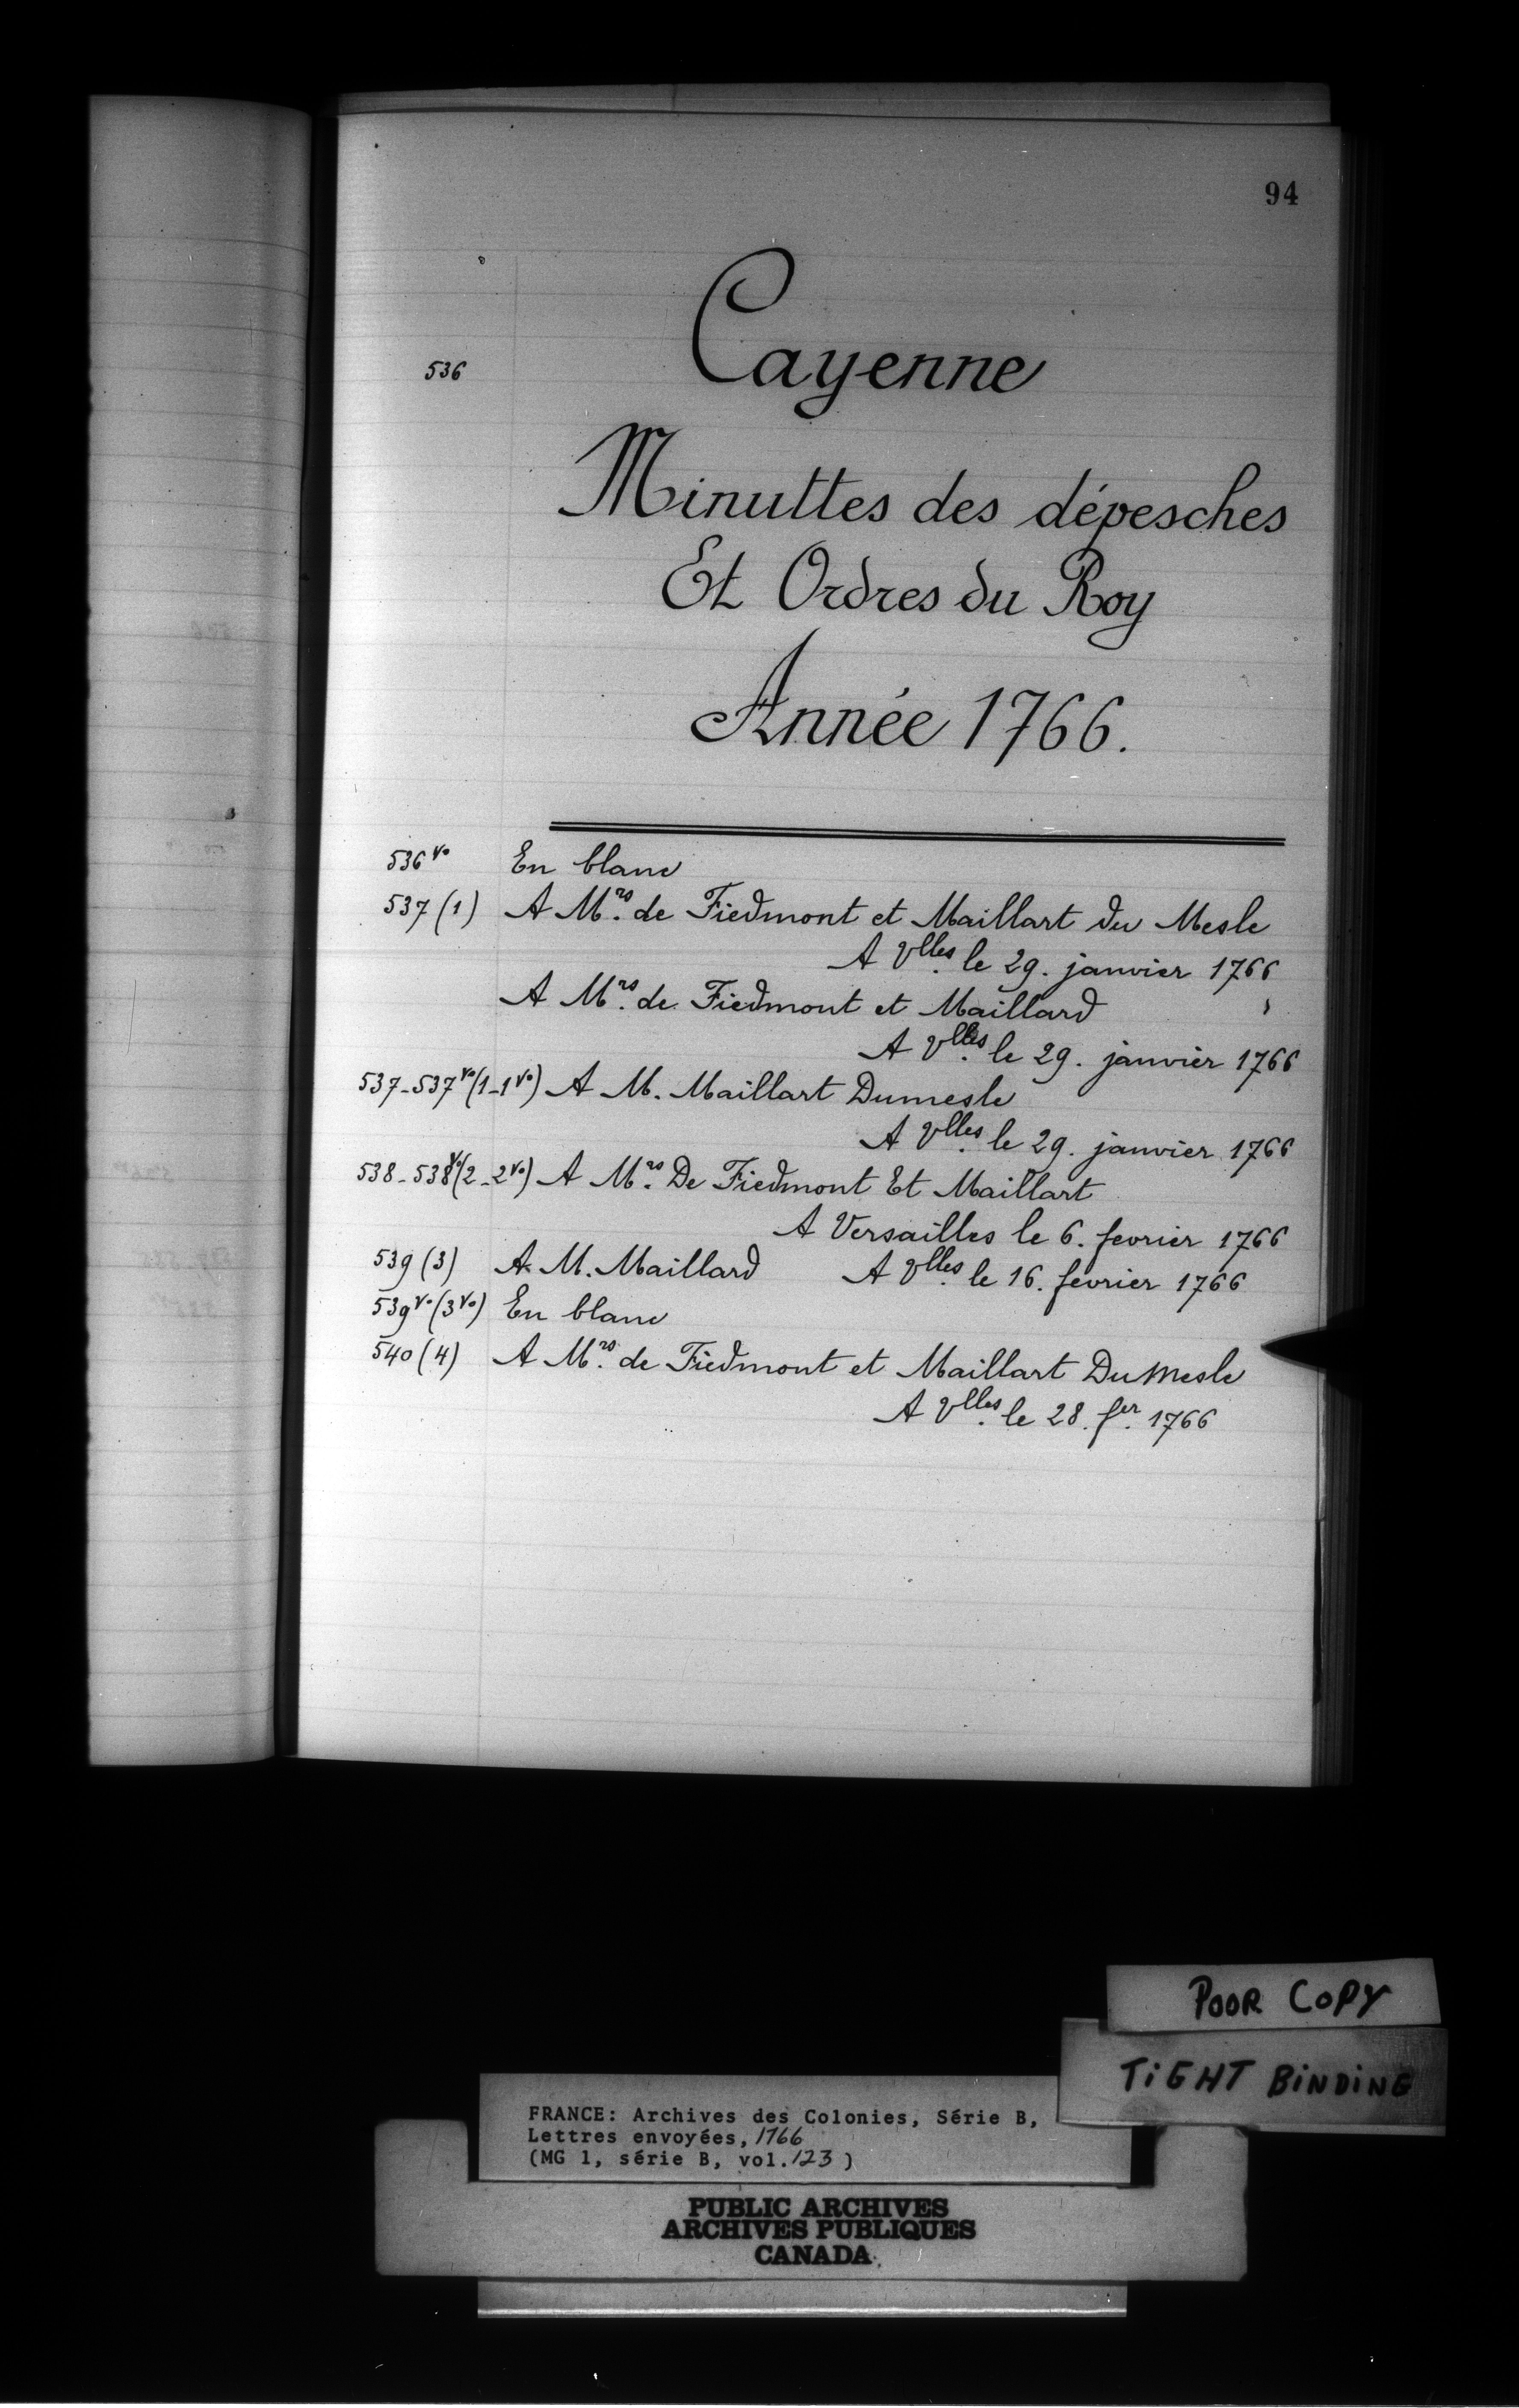 94
536 Cayenne
Minuttes des dépesches
Et Ordres du Roy
Année 1766.
536 vo En blanc
537 (1) A Mrs. de Fiedmont et Maillart du Mesle
A Vlles. le 29. janvier 1766
A Mrs. de Fiedmont et Maillard
A Vlles. le 29. janvier 1766
537-537 vo (1-1 vo) A M. Maillart Dumesle
A Vlles. le 29. janvier 1766
538-538 vo (2-2 vo) A Mrs. De Fiedmont Et Maillart
A Versailles le 6. fevrier 1766
539 (3) A. M. Maillard A Vlles. le 16. fevrier 1766
539 vo (3 vo) En blanc
540 (4) A Mrs. de Fiedmont et Maillart DuMesle
A Vlles. le 28. fer. 1766
POOR COPY
TIGHT BINDING
FRANCE: Archives des Colonies, Série B,
Lettres envoyées, 1766
(MG 1, série B, vol. 123)
PUBLIC ARCHIVES
ARCHIVES PUBLIQUES
CANADA